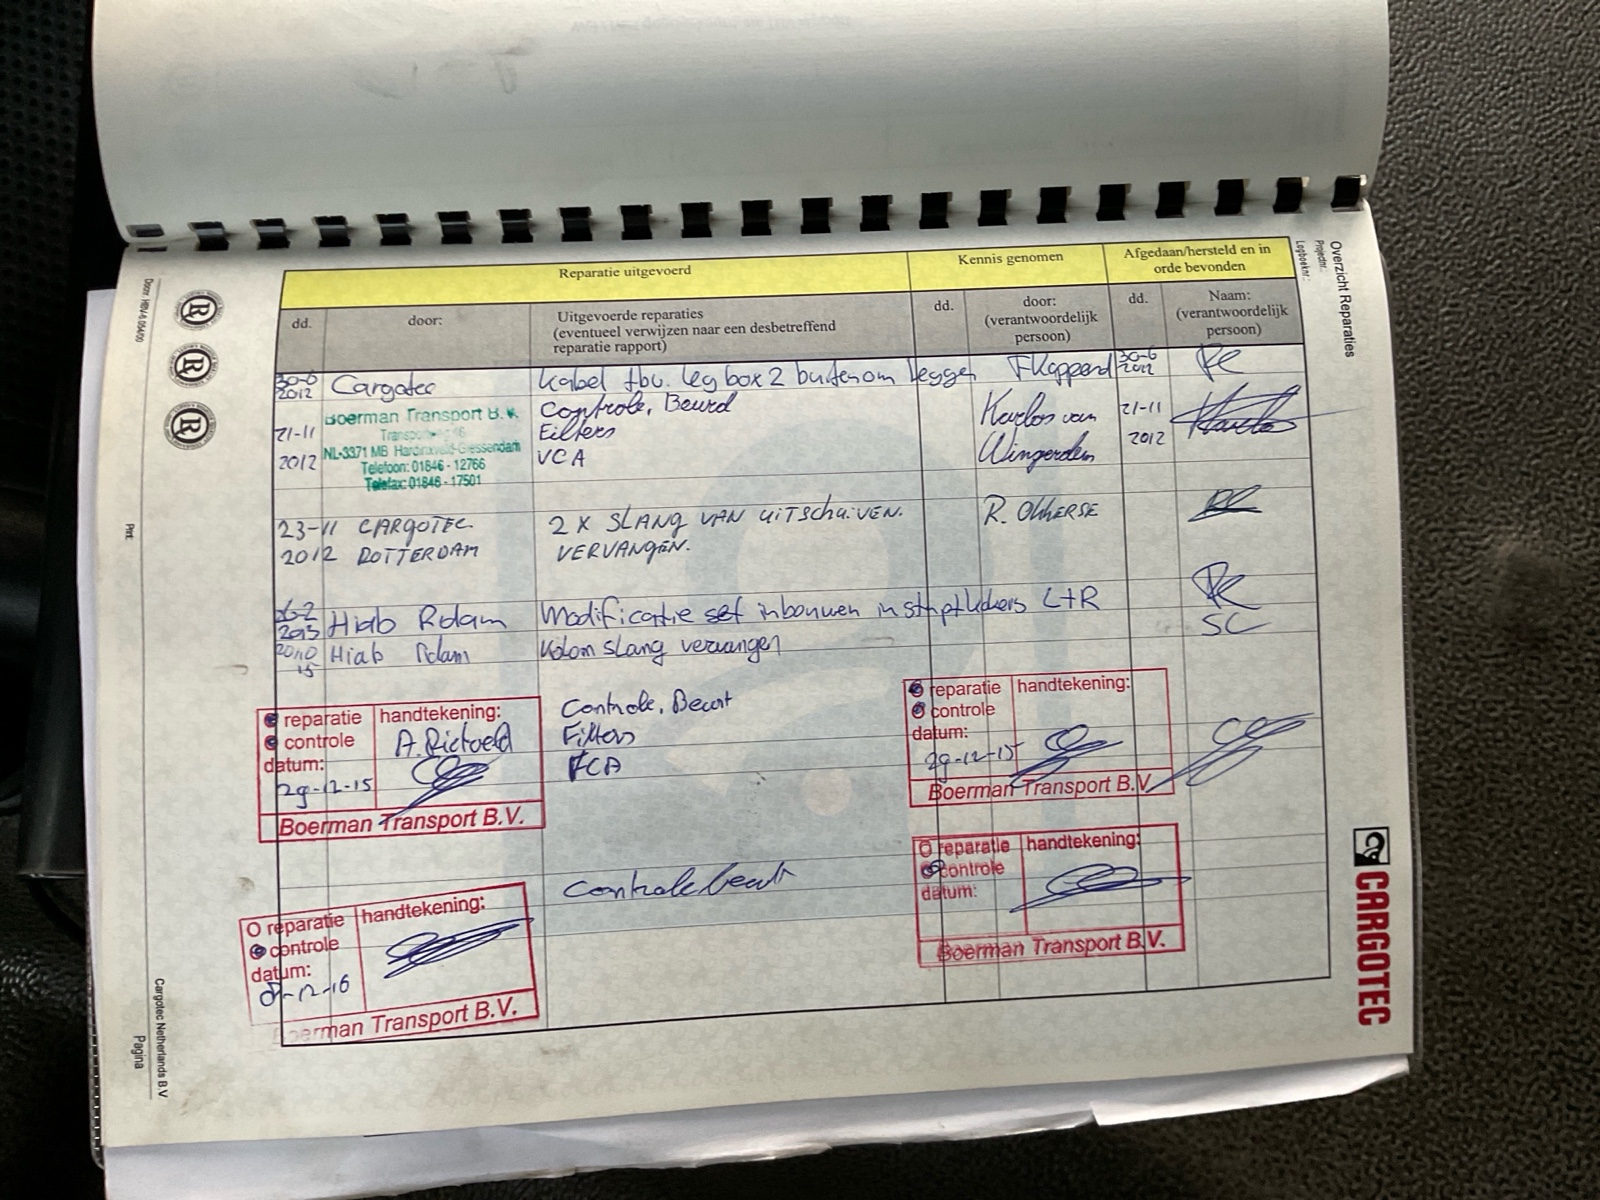 Overzicht Reparaties
Projectnr.:
Logboeknr.:
Reparatie uitgevoerd
Kennis genomen
Afgedaan/hersteld en in
orde bevonden
dd.
door:
Uitgevoerde reparaties
(eventueel verwijzen naar een desbetreffend
reparatie rapport)
dd.
door:
(verantwoordelijk
persoon)
dd.
Naam:
(verantwoordelijk
persoon)
30-6
2012
Cargotec
Kabel tbv. leg box 2 buitenom leggen
30-6
2012
21-11
2012
Boerman Transport B.V.
NL-3371 MB Hardinxveld-Giessendam
Telefoon: 01846 - 12766
Telefax: 01846 - 17501
Controle, Beurd
Filters
VCA
Karlos van
Wingerden
21-11
2012
23-11
2012
CARGOTEC
ROTTERDAM
2 X SLANG VAN UITSCHUIVEN.
VERVANGEN.
2013
Hiab Rdam
Modificatie set inbouwen in L+R
20-10
15
Hiab Rdam
Kolom slang vervangen
SC
reparatie
controle
datum:
29-12-15
handtekening:
Boerman Transport B.V.
Controle, Beurt
Filters
VCA
reparatie
controle
datum:
29-12-15
handtekening:
Boerman Transport B.V.
O reparatie
controle
datum:
-12-16
handtekening:
Boerman Transport B.V.
Controle beurt
O reparatie
controle
datum:
handtekening:
Boerman Transport B.V.
CARGOTEC
Cargotec Netherlands B.V
Pagina